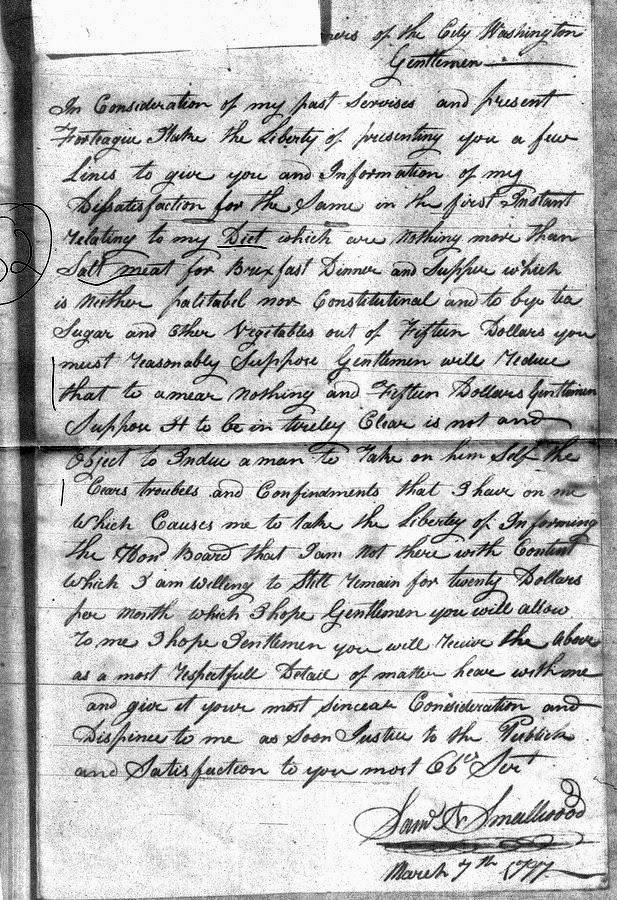 ners of the City Washington
Gentlemen
In Consideration of my past Servises and present
Forteague I take the Liberty of presenting you a few
Lines to give you and Information of my
Dissatisfaction for the Same in the first Instant
relating to my Diet which are Nothing more than
Salt meat for Brexfast Dinner and Supper which
is Neither palitabel nor Constitutinal and to bye tea
Sugar and other Vegitables out of Fifteen Dollars you
must reasonably Suppose Gentlemen will reduce
that to a mear nothing and Fifteen Dollars Gentlemen
Suppose It to be in tireley Clear is not and
Object to Induce a man to Take on him Self the
Cears troubels and Confindments that I have on me
Which Causes me to take the Liberty of Informing
the Honl. Board that I am not there with Content
which I am willing to Still remain for twenty Dollars
per Month which I hope Gentlemen you will allow
To me I hope Gentlemen you will receive the above
as a most respectfull Detail of matter hear with me
and give it your most Sincear Consideration and
Dispence to me as Soon Justice to the Publick
and Satisfaction to you most Obt. Servt
Saml. N Smallwood
March 7th 1797